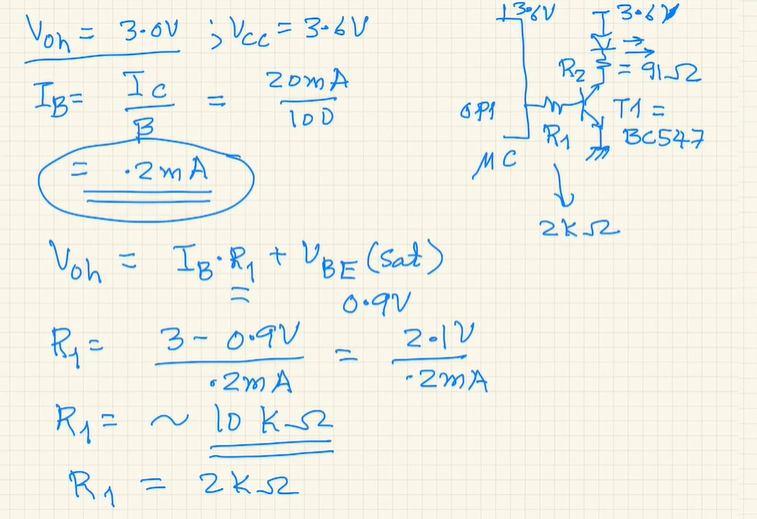 Voh = 3.0V ; Vcc = 3.6V
IB = Ic / B = 20mA / 100
= .2mA
Voh = IB·R1 + VBE (sat)
0.9V
R1 = 3 - 0.9V / .2mA = 2.1V / .2mA
R1 = ~ 10 KΩ
R1 = 2KΩ
3.6V
3.6V
R2 = 91Ω
OP1
R1
T1 =
BC547
MC
2KΩ